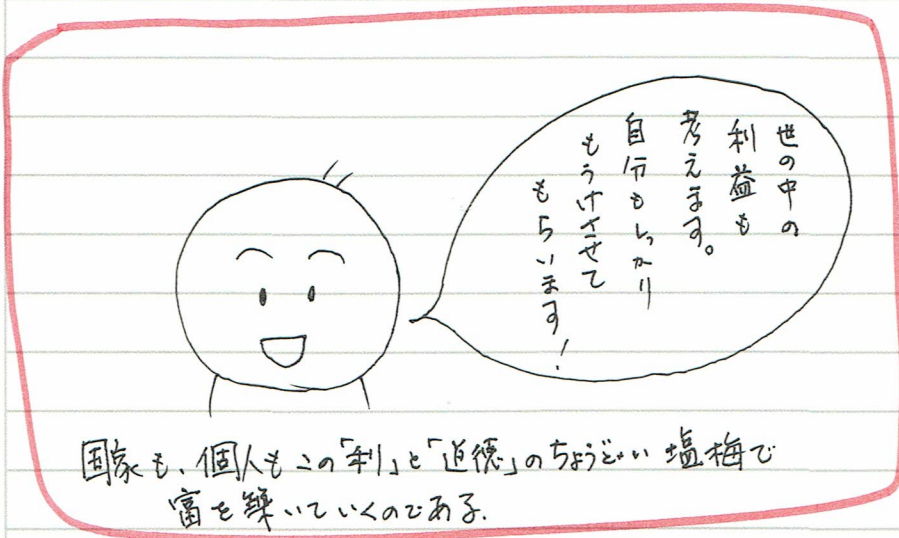 世の中の
利益も
考えます。
自分もしっかり
もうけさせて
もらいます!
国家も、個人もこの「利」と「道徳」のちょうどいい塩梅で
富を築いていくのである.